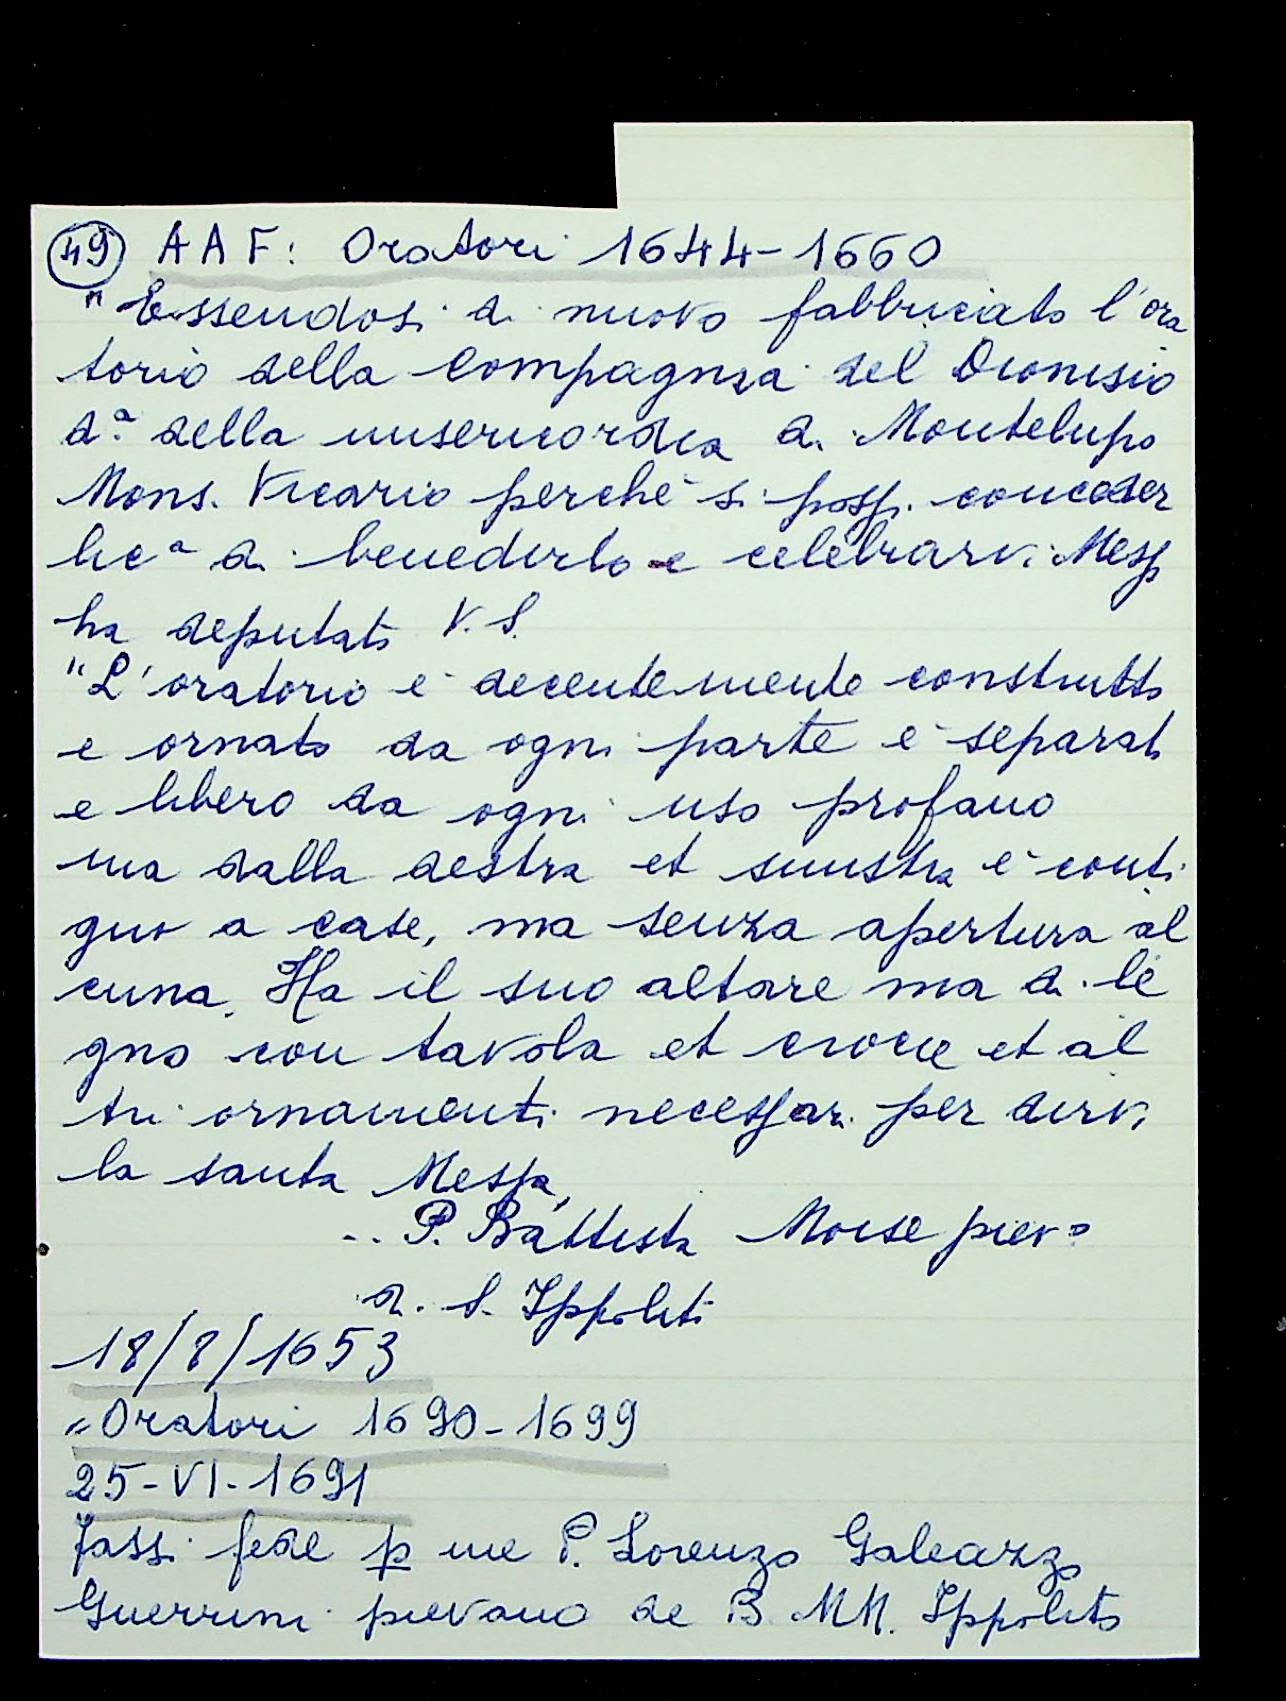 49 AAF: Oratori 1644-1660
"Essendosi di nuovo fabbricato l'ora
torio della Compagnia del Dionisio
d.ª della misericordia di Montelupo
Mons. Vicario perchè si poss. conceder
lic.ª di benedirlo e celebrarvi Messa
ha deputato V.S.
"L'oratorio è decentemente construtto
e ornato da ogni parte è separato
e libero da ogni uso profano
ma dalla destra et sinistra è conti
guo a case, ma senza apertura al
cuna. Ha il suo altare ma di le
gno con tavola et croce et al
tri ornamenti necessari per dirvi
la santa Messa,
.. P. Battista Moise piev.º
di S. Ippolito
18/8/1653
"Oratori 1690-1699
25-VI-1691
Fassi fede p me P. Lorenzo Galeazzo
Guerrini pievano de B. MM. Ippolito